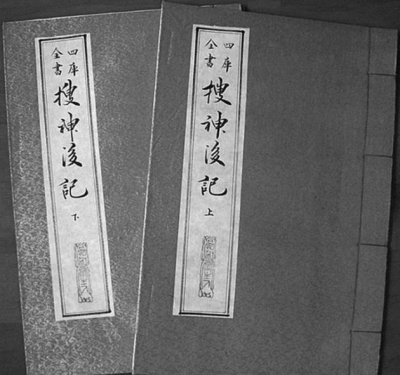 四庫全書
搜神後記
上
四庫全書
搜神後記
下